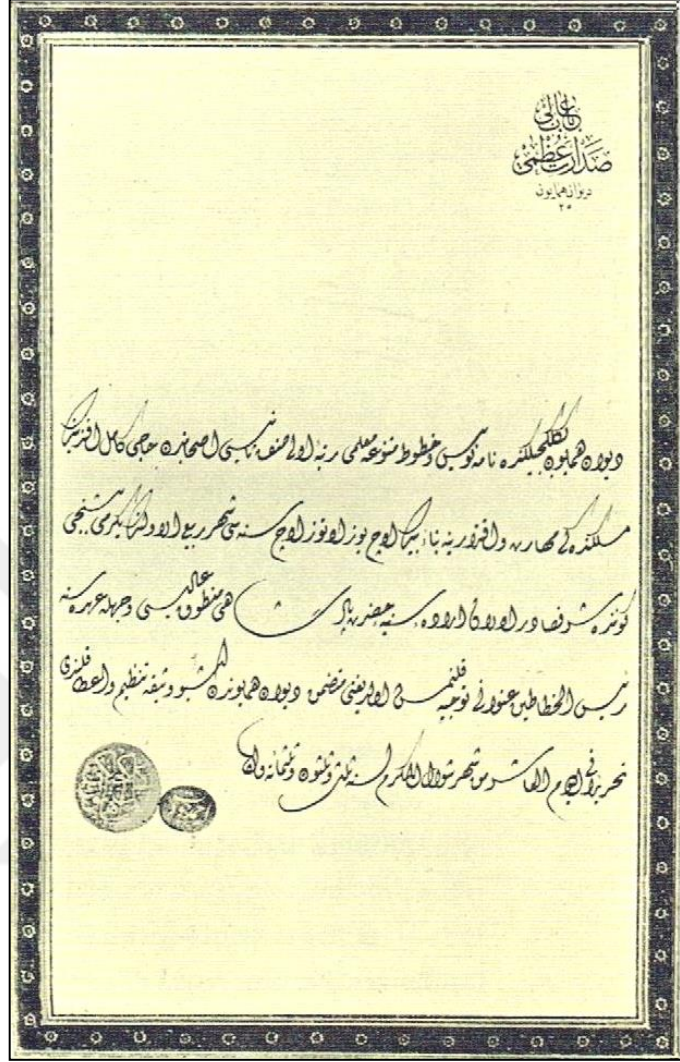 باب عالی
صدارت عظمی
دیوان همایون
٢٥
دیوان همایون بكلكجیلكنده نامه نویس و خطوط متنوعه معلمی رتبه اولی صنف ثانیسی اصحابندن حاجی كامل افندینك
مسلكنده كی مهارت و اقتدارینه بناء بیك اوچ یوز اوتوز اوچ سنه سی شهر ربیع الاولنك یكرمی بشنجی
كوننده شرفصادر اولان اراده سنیه حضرت پادشاهی منطوق عالیسی وجهله عهده سنه
رئیس الخطاطین عنوانی توجیه قلنمش اولدیغنی متضمن دیوان همایوندن اشبو وثیقه تنظیم و اعطا قلندی
تحریرا فی الیوم العاشر من شهر شوال المكرم لسنه ثلث و ثلثون و ثلثمائه و الف